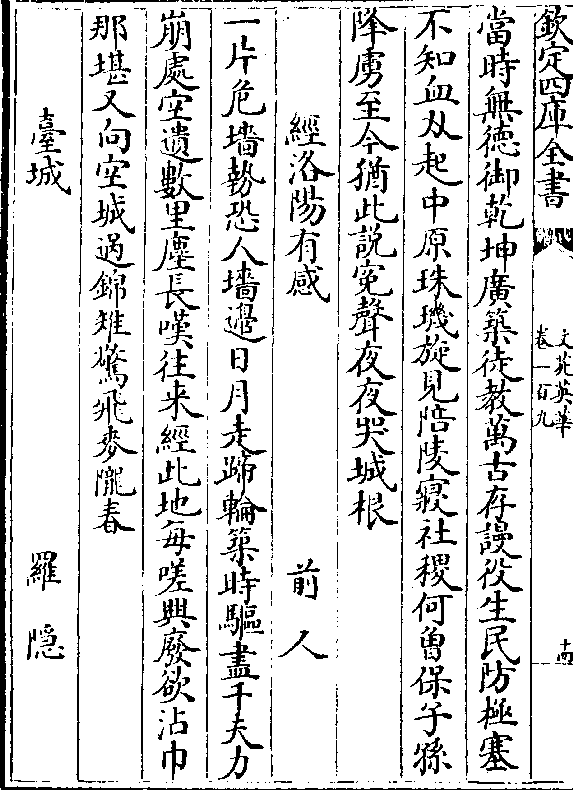 欽定四庫全書
文苑英華
卷三百九
十四
當時無德御乾坤廣築徒教萬古存謾役生民防極塞
不知血刃起中原珠璣旋見陪陵寢社稷何曾保子孫
降虜至今猶此説寃聲夜夜哭城根
經洛陽有感 前人
一片危墻勢恐人墻邉日月走蹄輪築時驅盡千夫力
崩處空遺數里塵長嘆往來經此地每嗟興廢欲沾巾
那堪又向空城過錦雉驚飛麥隴春
臺城 羅隠